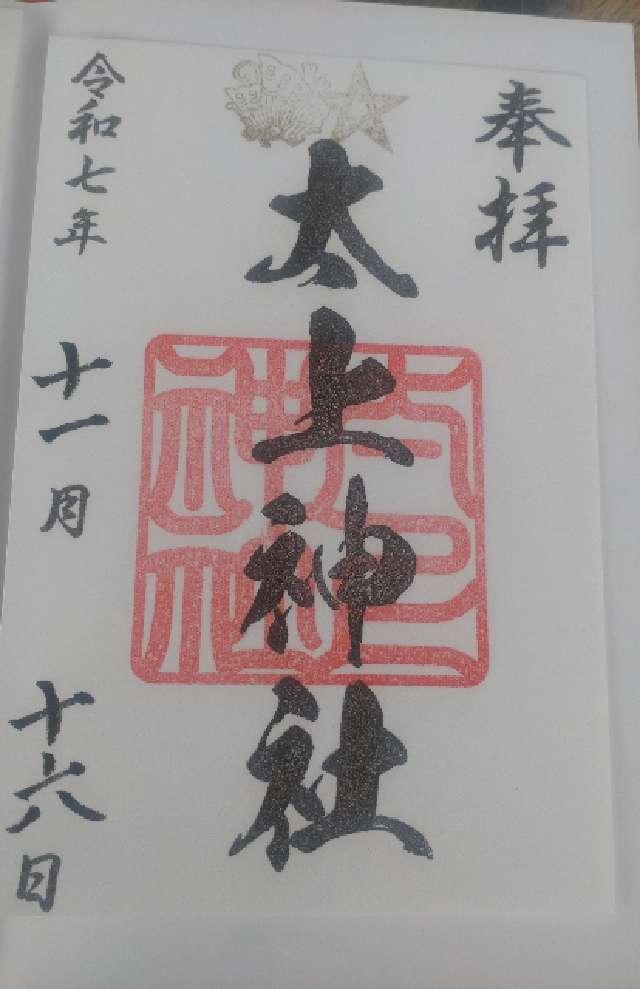 奉拝
太上神社
令和七年 十一月 十六日